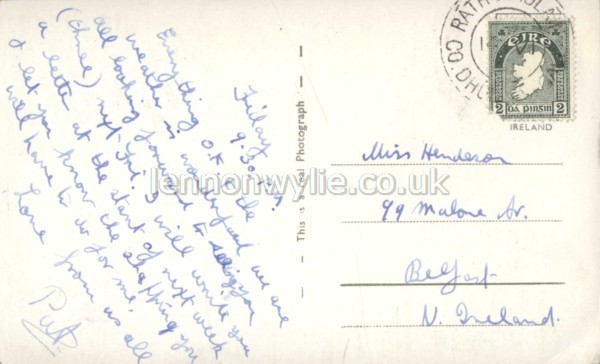 Friday
9.30
Everything O.K. & the
weather is wonderful and we are
all looking forward to seeing you
(three) next Fri. I will write you
a letter at the start of next week
& let you know the shopping you
will have to do for me.
Love from us all
Pat
This is a Real Photograph
CO
ÉIRE
2 DÁ PINGIN 2
IRELAND
Miss Henderson
99 Malone Av.
Belfast
N. Ireland.
lennonwylie.co.uk